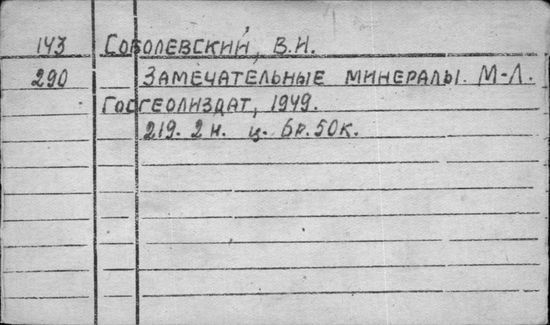 143 Соболевский, В.И.
290 Замечательные минералы. М-Л.
Госгеолиздат, 1949.
219. 2н. ц. 6р.50к.